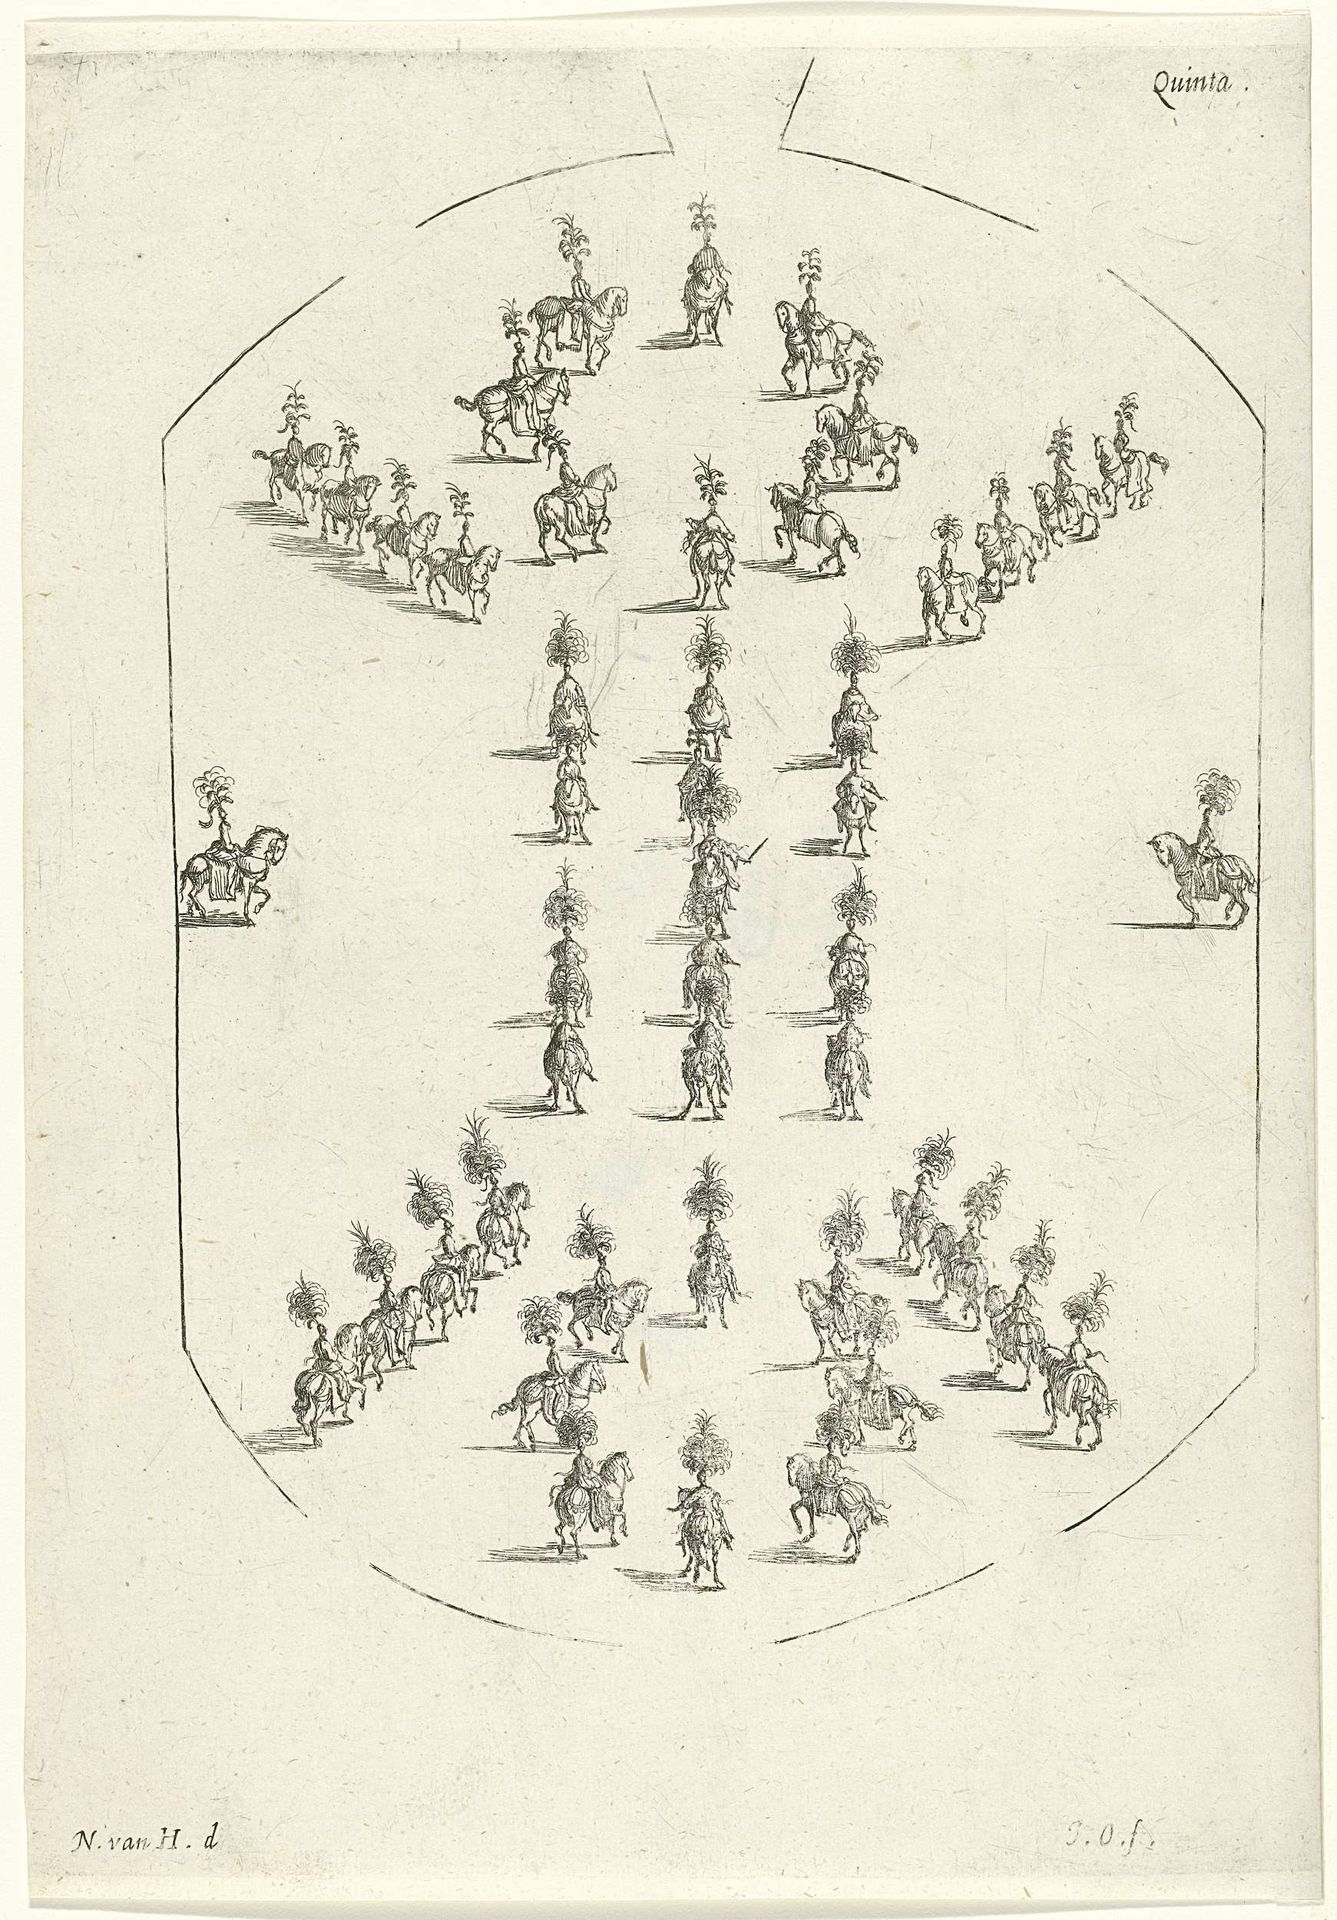 Quinta .
N. van H. d
J. O. f.